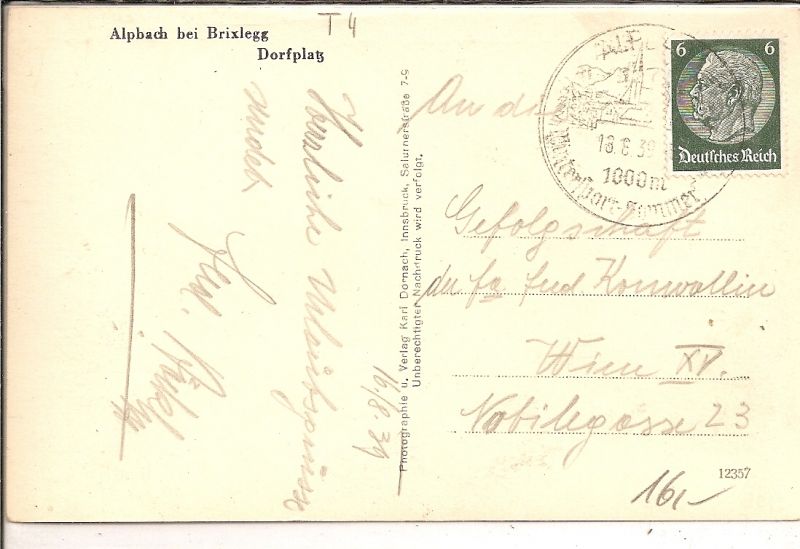 Alpbach bei Brixlegg
Dorfplatz
T4
Herzliche Urlaubsgrüsse
sendet
16/8.39
Photographie u. Verlag Karl Dornach, Innsbruck, Salurnerstraße 7-9
Unberechtigter Nachdruck wird verfolgt.
18.8.39
1000m
Wintersport-Sommer
6 6
Deutsches Reich
An die
Gefolgschaft
der fa
Wien XV.
Nobilegasse 23
12357
16,-